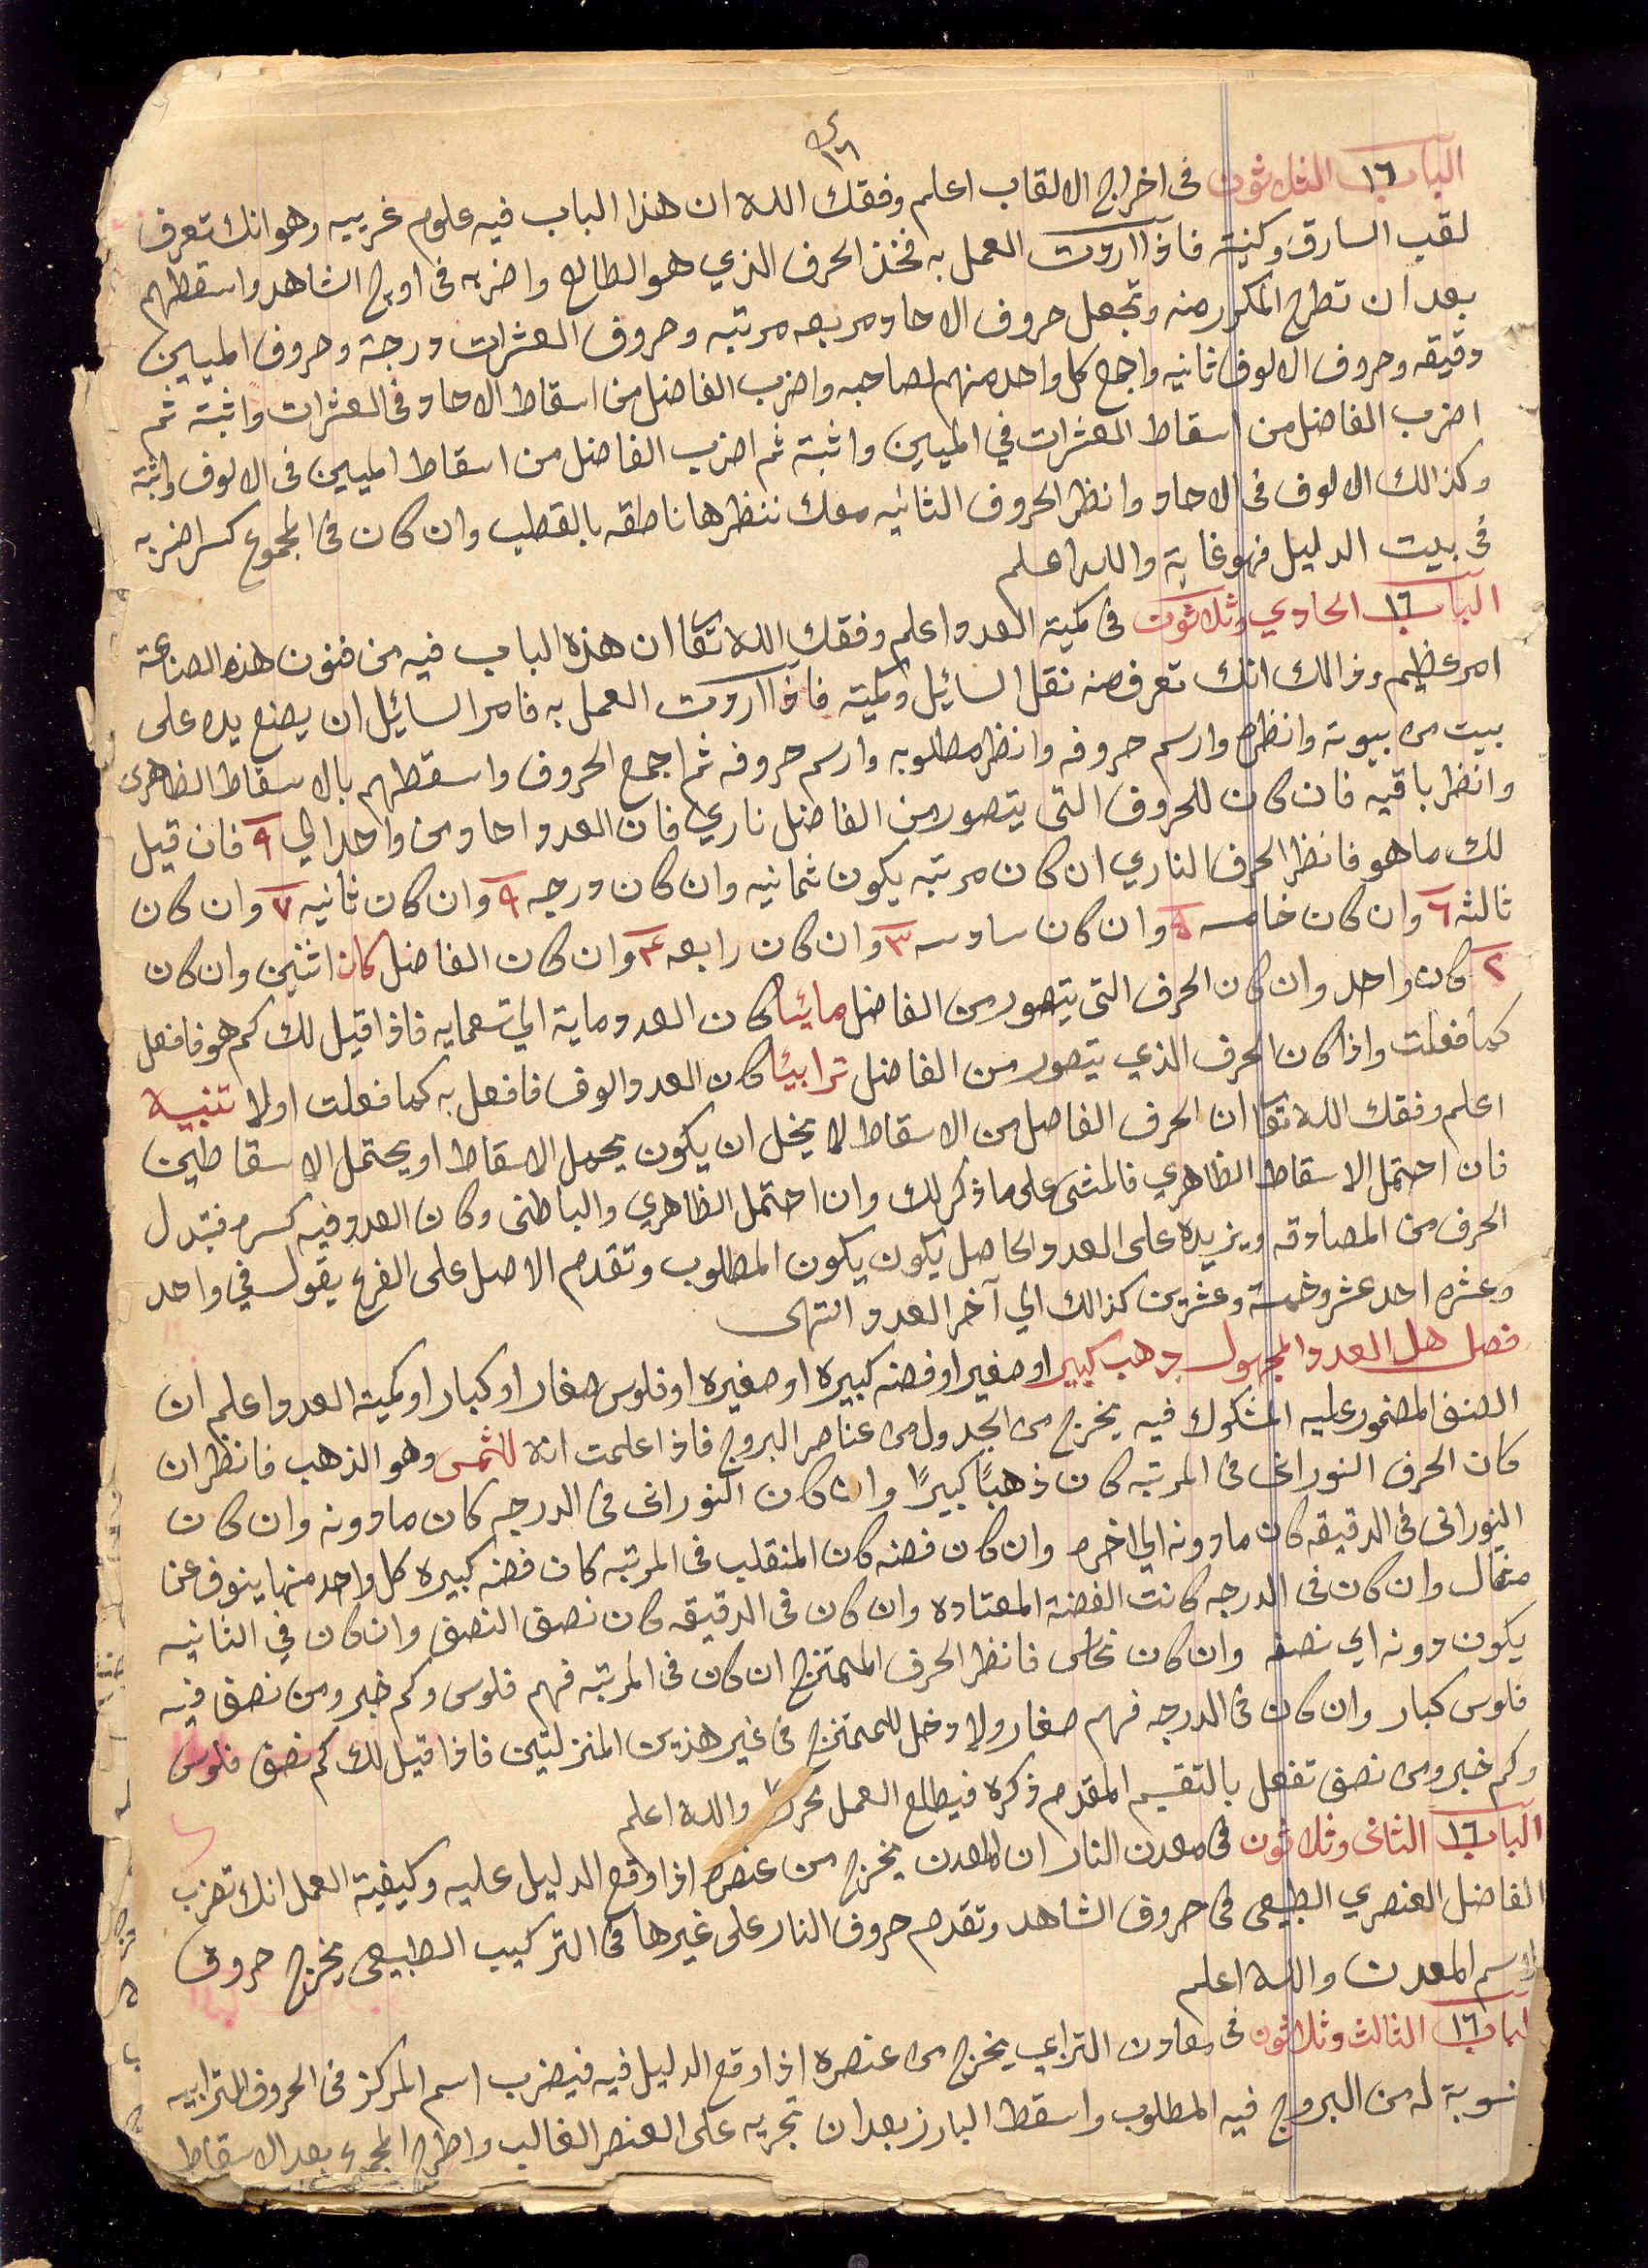 ١٦
الباب ١٦ الثلاثون في اخراج الالقاب اعلم وفقك الله ان هذا الباب فيه علوم غريبه وهو انك تعرف
لقب السارق وكنيته فاذا اردت العمل به فخذ الحرف الذي هو الطالع واضربه في اوج الشاهد واسقطهم
بعد ان تطرح المكرر منه وتجعل حروف الاحاد مربعه مرتبه وحروف العشرات درجة وحروف الميين
دقيقه وحروف الالوف ثانيه واجمع كل واحد منهم لصاحبه واضرب الفاضل من اسقاط الاحاد في العشرات واثبته ثم
اضرب الفاضل من اسقاط العشرات في الميين واثبته ثم اضرب الفاضل من اسقاط الميين في الالوف واثبته
وكذالك الالوف في الاحاد وانظر الحروف الثانيه معك تنظرها ناطقه بالقطب وان كان في المجموع كسر اضربه
في بيت الدليل فهو غاية والله اعلم
الباب ١٦ الحادي وثلاثون في كمية العدد اعلم وفقك الله تعا ان هذه الباب فيه من فنون هذه الصناعة
امر عظيم وذالك انك تعرف منه نقل السائيل وكميته فاذا اردت العمل به فامر السائيل ان يضع يده على
بيت من بيوته وانظره وارسم حروفه وانظر مطلوبه وارسم حروفه ثم اجمع الحروف واسقطهم بالاسقاط الظاهرى
وانظر باقيه فان كان للحروف التى يتصور من الفاضل ناري فان العدد احاد من واحد الي ٩ فان قيل
لك ما هو فانظر الحرف الناري ان كان مرتبه يكون ثمانيه وان كان درجه ٩ وان كان ثانيه ٧ وان كان
ثالثه ٦ وان كان خامسه ٥ وان كان سادسه ٣ وان كان رابعه ٤ وان كان الفاضل كان اثنين وان كان
٢ كان واحد وان كان الحرف التى يتصور من الفاضل مائيا كان العدد ماية الي تسعمايه فاذا قيل لك كم هو فافعل
كما فعلت واذا كان الحرف الذي يتصور من الفاضل ترابيا كان العدد الوف فافعل به كما فعلت اولا تنبيه
اعلم وفقك الله تعا ان الحرف الفاضل من الاسقاط لا يخل ان يكون يحمل الاسقاط او يحتمل الاسقاطين
فان احتمل الاسقاط الظاهري فالمشى على ما ذكر لك وان احتمل الظاهري والباطنى وكان العدد فيه كسر فتبدل
الحرف من المصادقه ويزيده على العدد الحاصل يكون يكون المطلوب وتقدم الاصل على الفرع يقول في واحد
وعشره احد عشر وخمسة وعشرين كذالك الي آخر العدد انتهى
فصل هل العدد المجهول ذهب كبير او صغير او فضه كبيره او صغيره او فلوس صغار او كبار او كمية العدد اعلم ان
الصنف المضمور عليه المشكوك فيه يخرج من الجدول من عناصر البروج فاذا علمت انه للشمس وهو الذهب فانظر ان
كان الحرف النوراني في المرتبه كان ذهبًا كبيرًا وان كان النوراني في الدرجه كان ما دونه وان كان
النوراني في الدقيقه كان ما دونه الي اخره وان كان فضه كان المنقلب في المرتبه كان فضه كبيره كل واحد منها ينوف عن
مثقال وان كان في الدرجه كانت الفضة المعتاده وان كان في الدقيقه كان نصف النصف وان كان في الثانيه
يكون دونه اي نصفه وان كان نحاس فانظر الحرف الممتزج ان كان في المرتبه فهم فلوس وكم خبر ومن نصف فيه
فلوس كبار وان كان في الدرجه فهم صغار ولا دخل للممتزج في غير هذين المنزلتين فاذا قيل لك كم نصف فلوس
وكم خبر ومن نصف تفعل بالتقسيم المقدم ذكره فيطلع العمل والله اعلم
الباب ١٦ الثانى وثلاثون في معدن النار ان المعدن يخرج من عنصره اذا وقع الدليل عليه وكيفية العمل انك تضرب
الفاضل العنصري الطبيعى في حروف الشاهد وتقدم حروف النار على غيرها في التركيب الطبيعى يخرج حروف
اسم المعدن والله اعلم
الباب ١٦ الثالث وثلاثون في معادن الترابي يخرج من عنصره اذا وقع الدليل فيه فيضرب اسم المركز في الحروف الترابيه
له من البروج فيه المطلوب واسقط البارز بعد ان تجريه على العنصر الغالب واطرح المجموع بعد الاسقاط